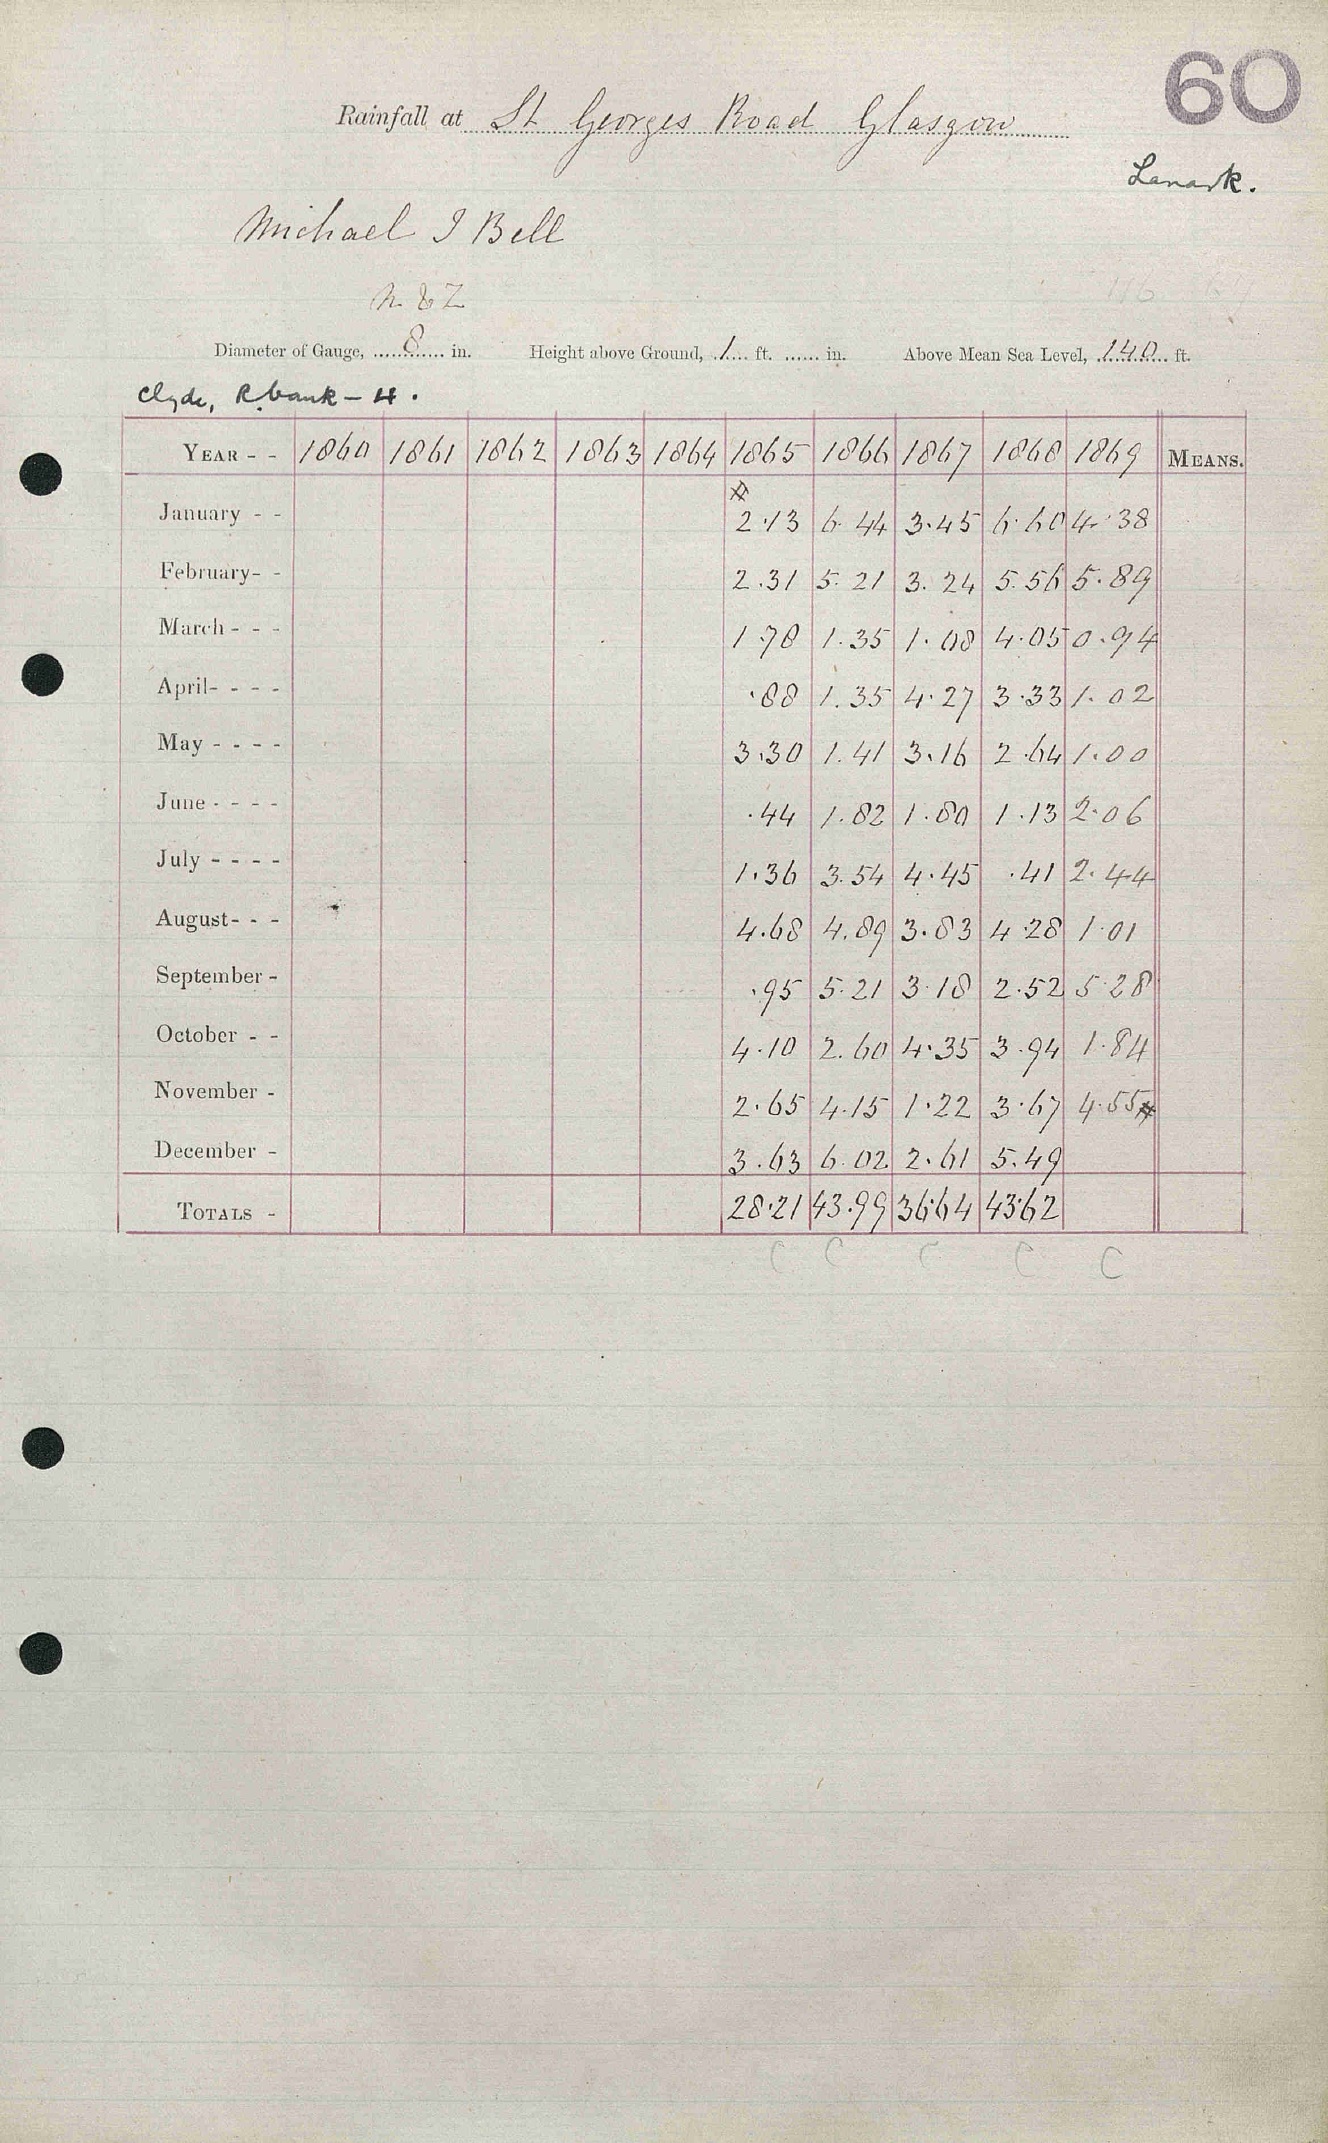 60
Rainfall at St Georges Road Glasgow
Lanark.
Michael J Bell
Diameter of Gauge, 8 in. Height above Ground, 1 ft. ...... in. Above Mean Sea Level, 140 ft.
Clyde, R. bank - 4.
YEAR - - 1860 1861 1862 1863 1864 1865 1866 1867 1868 1869 MEANS.
January - - 2.13 6.44 3.45 6.60 4.38
February - - 2.31 5.21 3.24 5.56 5.89
March - - - 1.78 1.35 1.08 4.05 0.94
April - - - - .88 1.35 4.27 3.33 1.02
May - - - - 3.30 1.41 3.16 2.64 1.00
June - - - - .44 1.82 1.80 1.13 2.06
July - - - - 1.36 3.54 4.45 .41 2.44
August - - - 4.68 4.89 3.83 4.28 1.01
September - .95 5.21 3.18 2.52 5.28
October - - 4.10 2.60 4.35 3.94 1.84
November - 2.65 4.15 1.22 3.67 4.55
December - 3.63 6.02 2.61 5.49
TOTALS - 28.21 43.99 36.64 43.62
C C C C C